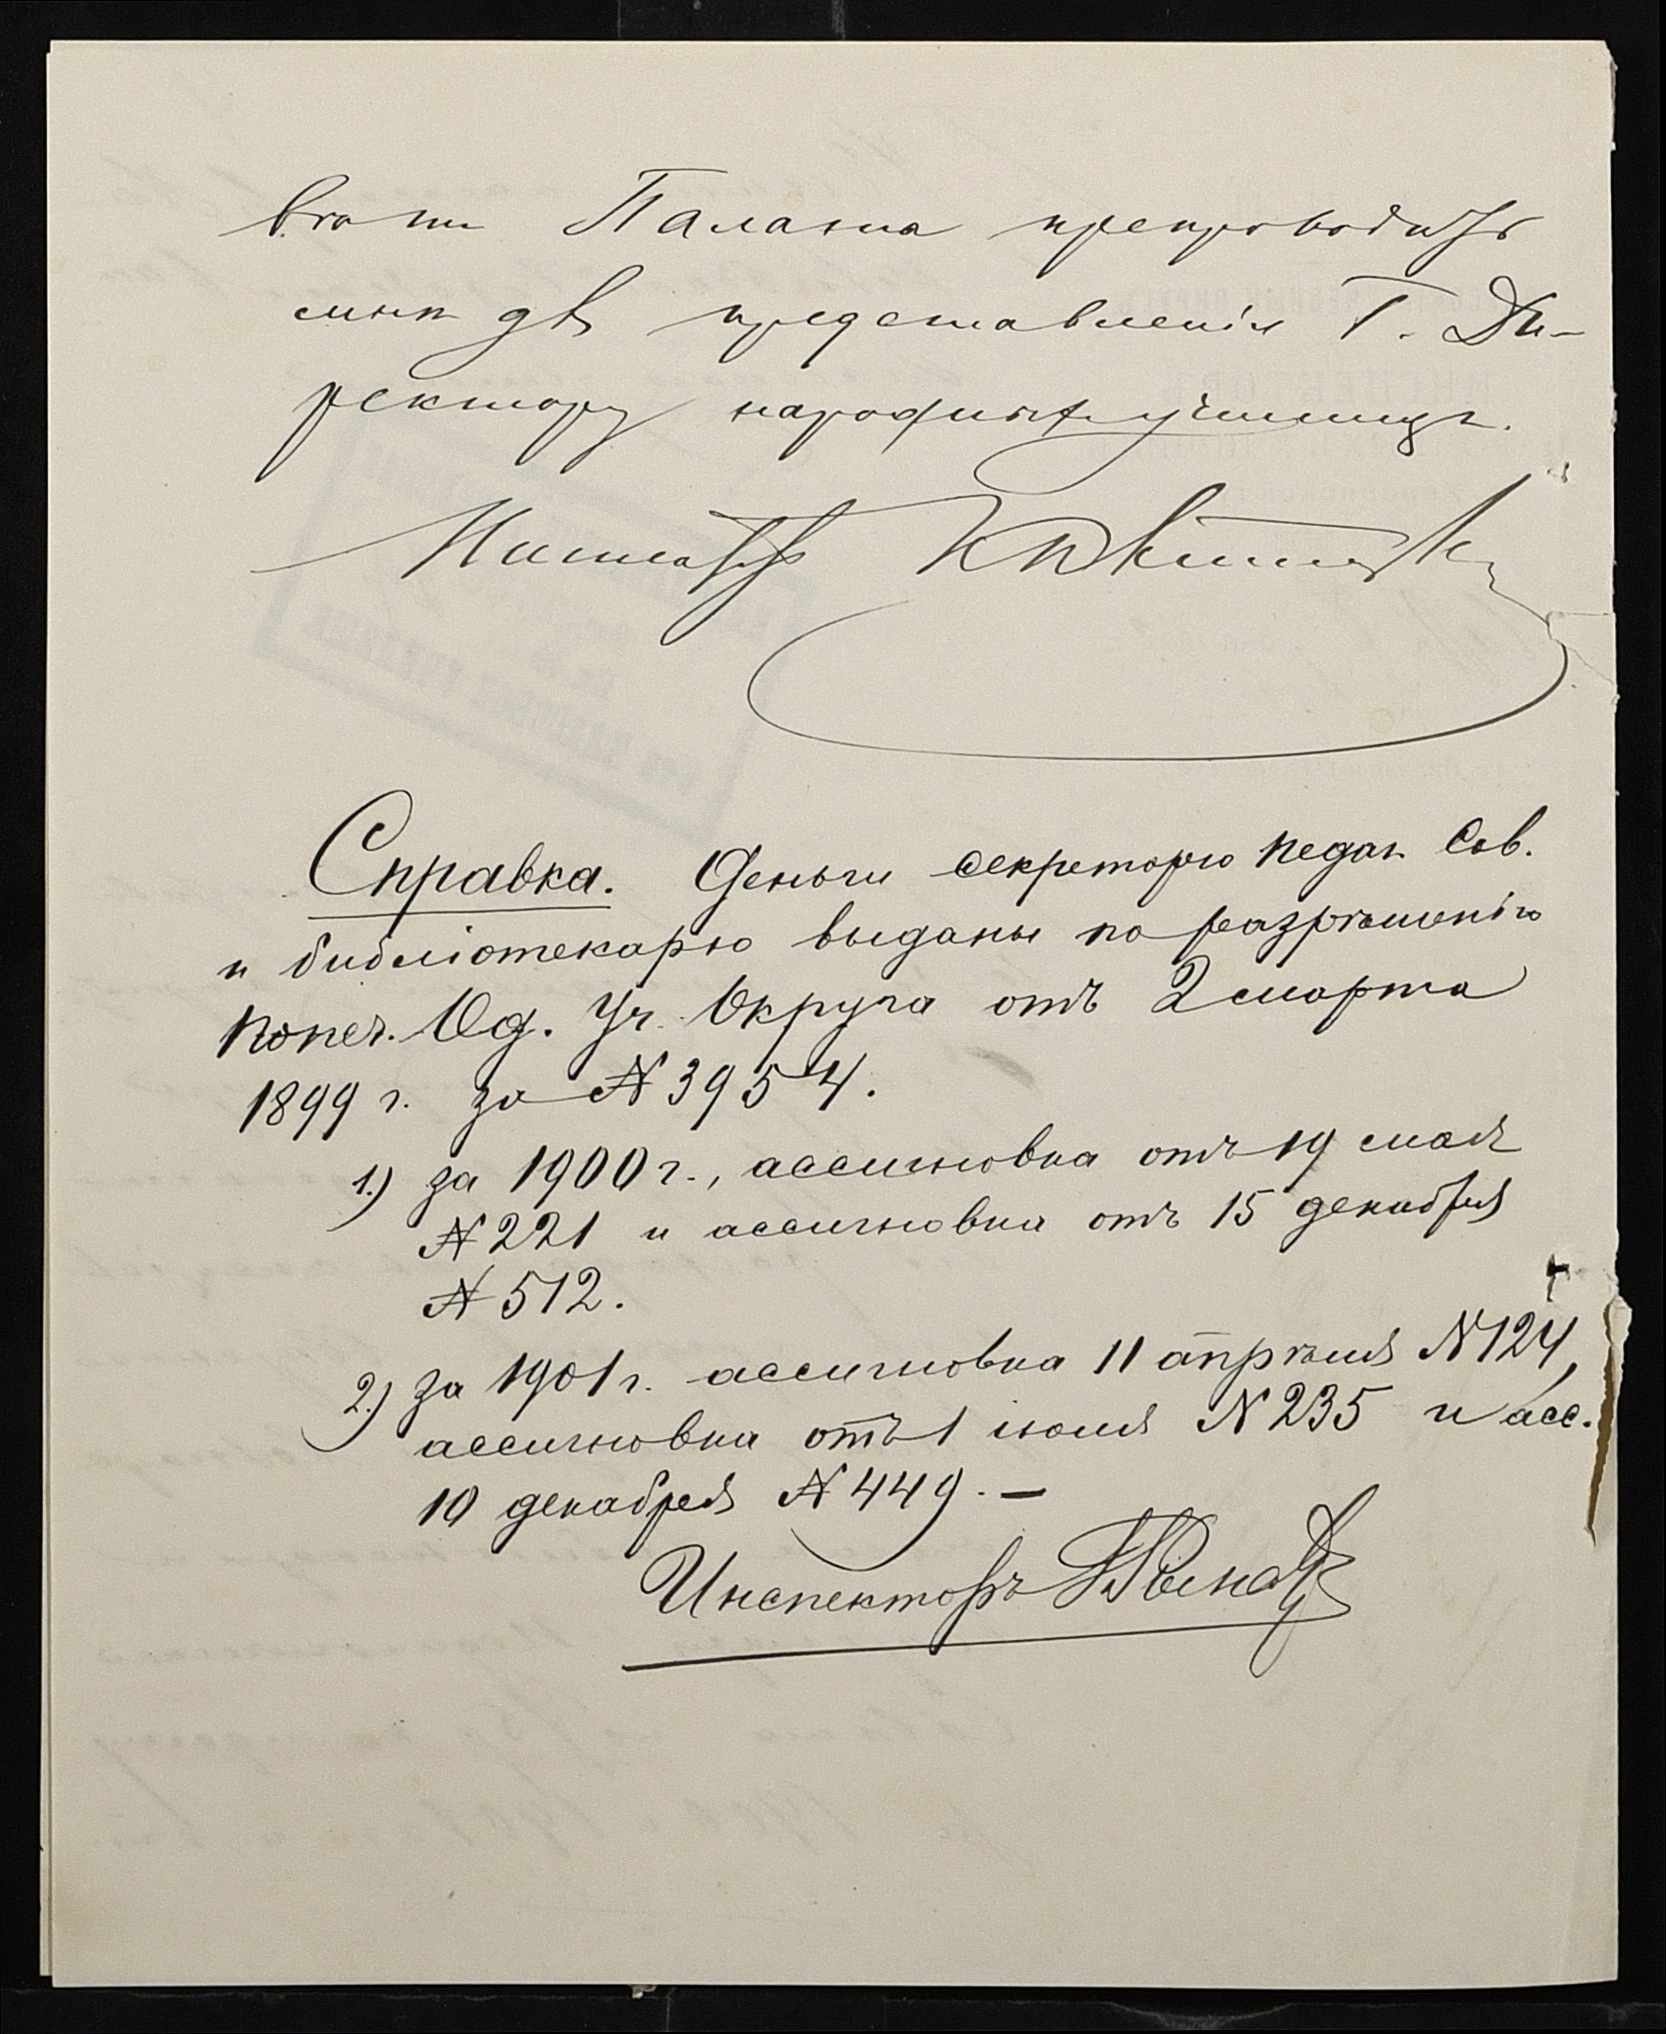 Палата препроводить
мнѣ для представленія Г. Ди-
ректору народныхъ училищъ.
Справка. Деньги секретарю педаг. Сов.
и библіотекарю выданы по разрѣшенію
Попеч. Од. Уч. Округа отъ 2 марта
1899 г. за № 3954.
1.) за 1900 г., ассигновка отъ 19 мая
№ 221 и ассигновка отъ 15 декабря
№ 512.
2.) за 1901 г. ассигновка 11 апрѣля № 124,
ассигновка отъ 1 іюля № 235 и асс.
10 декабря № 449. —
Инспекторъ